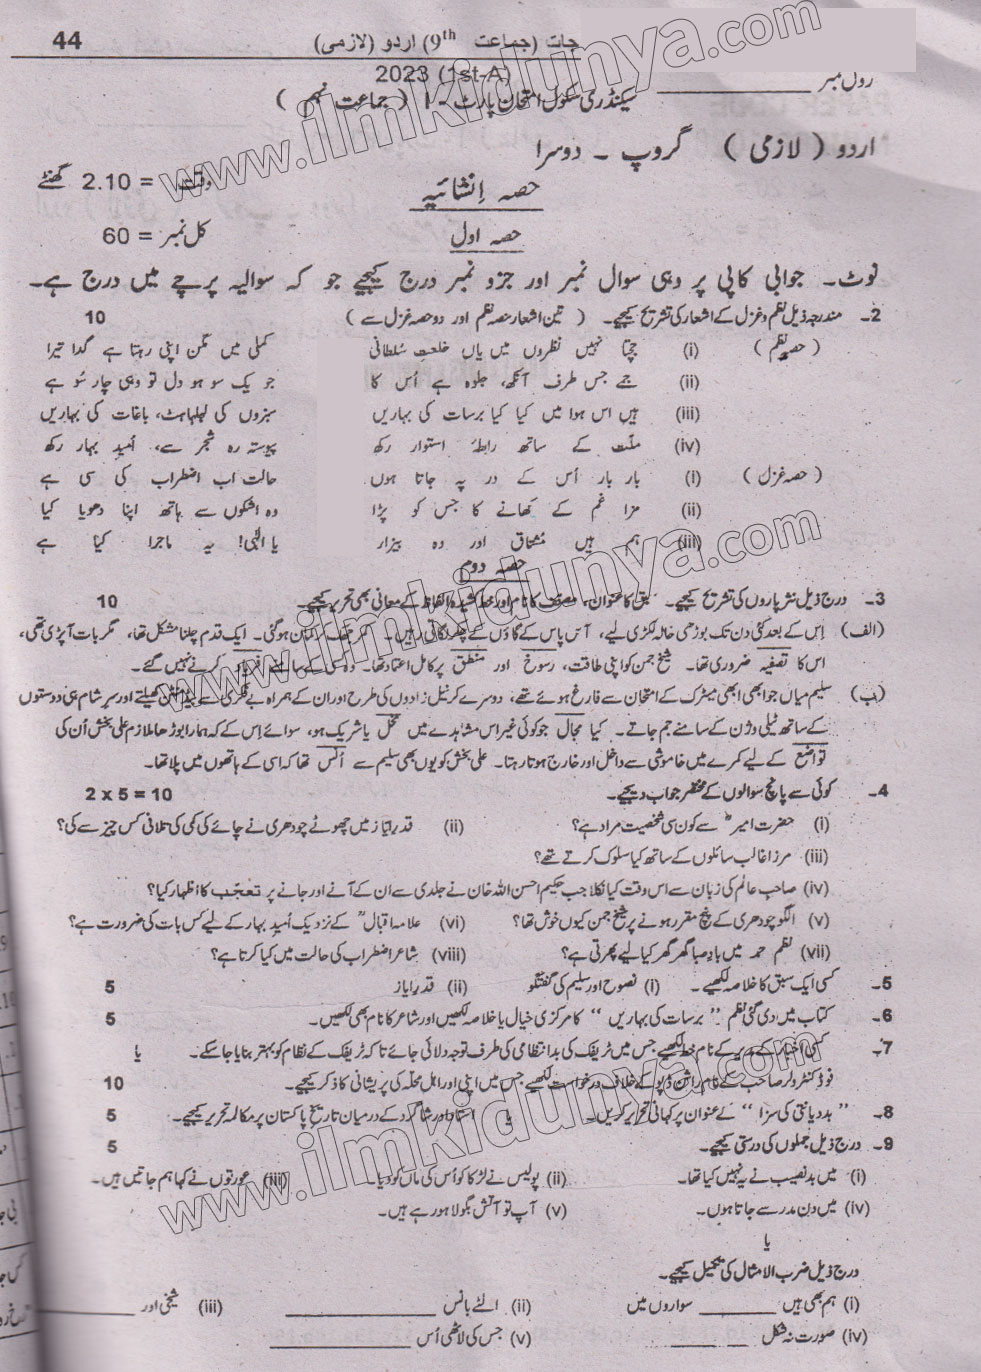 44
جات (جماعت 9th) اردو (لازمی)
رول نمبر ____________ 2023 (1st-A)
سیکنڈری سکول امتحان پارٹ - I ( جماعت نہم )
اردو ( لازمی ) گروپ - دوسرا
وقت = 2.10 گھنٹے
حصہ اِنشائیہ
کل نمبر = 60
حصہ اول
نوٹ۔ جوابی کاپی پر وہی سوال نمبر اور جزو نمبر درج کیجیے جو کہ سوالیہ پرچے میں درج ہے۔
2۔ مندرجہ ذیل نظم و غزل کے اشعار کی تشریح کیجیے۔ ( تین اشعار حصہ نظم اور دو حصہ غزل سے ) 10
( حصہ نظم ) (i) جچتا نہیں نظروں میں یاں خلعتِ سُلطانی کملی میں مگن اپنی رہتا ہے گدا تیرا
(ii) جمے جس طرف آنکھ، جلوہ ہے اُس کا جو یک سو ہو دل تو وہی چار سُو ہے
(iii) ہیں اس ہوا میں کیا کیا برسات کی بہاریں سبزوں کی لہلہاہٹ، باغات کی بہاریں
(iv) ملّت کے ساتھ رابطۂ استوار رکھ پیوستہ رہ شجر سے، اُمیدِ بہار رکھ
( حصہ غزل ) (i) بار بار اُس کے در پہ جاتا ہوں حالت اب اضطراب کی سی ہے
(ii) مزا غم کے کھانے کا جس کو پڑا وہ اشکوں سے ہاتھ اپنا دھویا کیا
(iii) ہم ہیں مُشتاق اور وہ بیزار یا الٰہی! یہ ماجرا کیا ہے
حصہ دوم
3۔ درج ذیل نثر پاروں کی تشریح کیجیے۔ سبق کا عنوان، مصنف کا نام اور خط کشیدہ الفاظ کے معانی بھی تحریر کیجیے۔ 10
(الف) اِس کے بعد کئی دن تک بوڑھی خالہ لکڑی لیے، آس پاس کے گاؤں کے چکر لگاتی رہیں۔ کمر جھک کر کمان ہوگئی۔ ایک قدم چلنا مشکل تھا، مگر بات آ پڑی تھی،
اس کا تصفیہ ضروری تھا۔ شیخ جمن کو اپنی طاقت، رسوخ اور منطق پر کامل اعتماد تھا۔ وہ کسی کے سامنے فریاد کرنے نہیں گئے۔
(ب) سلیم میاں جو ابھی ابھی میٹرک کے امتحان سے فارغ ہوئے تھے، دوسرے کرنیل زادوں کی طرح اور ان کے ہمراہ بے فکری سے بیڈمنٹن کھیلتے اور سرِ شام ہی دوستوں
کے ساتھ ٹیلی وژن کے سامنے جم جاتے۔ کیا مجال جو کوئی غیر اس مشاہدے میں مخل یا شریک ہو، سوائے اِس کے کہ ہمارا بوڑھا ملازم علی بخش اُن کی
تواضع کے لیے کمرے میں خاموشی سے داخل اور خارج ہوتا رہتا۔ علی بخش کو یوں بھی سلیم سے اُنس تھا کہ اسی کے ہاتھوں میں پلا تھا۔
4۔ کوئی سے پانچ سوالوں کے مختصر جواب دیجیے۔ 2 x 5 = 10
(i) حضرت امیرؓ سے کون سی شخصیت مراد ہے؟ (ii) قدرِ ایاز میں چھوٹے چودھری نے چائے کی کمی کی تلافی کس چیز سے کی؟
(iii) مرزا غالب سائلوں کے ساتھ کیا سلوک کرتے تھے؟
(iv) صاحبِ عالم کی زبان سے اس وقت کیا نکلا جب حکیم احسن اللہ خان نے جلدی سے ان کے آنے اور جانے پر تعجّب کا اظہار کیا؟
(v) الگو چودھری کے پنچ مقرر ہونے پر شیخ جمن کیوں خوش تھا؟ (vi) علامہ اقبالؒ کے نزدیک اُمیدِ بہار کے لیے کس بات کی ضرورت ہے؟
(vii) نظم حمد میں بادِ صبا گھر گھر کیا لیے پھرتی ہے؟ (viii) شاعر اضطراب کی حالت میں کیا کرتا ہے؟
5۔ کسی ایک سبق کا خلاصہ لکھیے۔ (i) نصوح اور سلیم کی گفتگو (ii) قدرِ ایاز 5
6۔ کتاب میں دی گئی نظم " برسات کی بہاریں " کا مرکزی خیال یا خلاصہ لکھیں اور شاعر کا نام بھی لکھیں۔ 5
7۔ کسی اخبار کے مدیر کے نام خط لکھیے جس میں ٹریفک کی بد انتظامی کی طرف توجہ دلائی جائے تاکہ ٹریفک کے نظام کو بہتر بنایا جا سکے۔ یا
فوڈ کنٹرولر صاحب کے نام راشن ڈپو کے خلاف درخواست لکھیے جس میں اپنی اور اہلِ محلہ کی پریشانی کا ذکر کیجیے۔ 10
8۔ " بددیانتی کی سزا " کے عنوان پر کہانی تحریر کریں۔ یا استاد اور شاگرد کے درمیان تاریخِ پاکستان پر مکالمہ تحریر کیجیے۔ 5
9۔ درج ذیل جملوں کی درستی کیجیے۔ 5
(i) میں بدنصیب نے یہ نہیں کیا تھا۔ (ii) پولیس نے لڑکا کو اُس کی ماں کو دیا۔ (iii) عورتوں نے کہا ہم جاتیں ہیں۔
(iv) میں دن مدرسے جاتا ہوں۔ (v) آپ تو آتش بگولا ہو رہے ہیں۔
یا
درج ذیل ضرب الامثال کی تکمیل کیجیے۔
(i) ہم بھی ہیں __________ سواروں میں (ii) الٹے بانس ____________________ (iii) شیخی اور ____________
(iv) صورت نہ شکل __________ (v) جس کی لاٹھی اُس ____________________
www.ilmkidunya.com
www.ilmkidunya.com
www.ilmkidunya.com